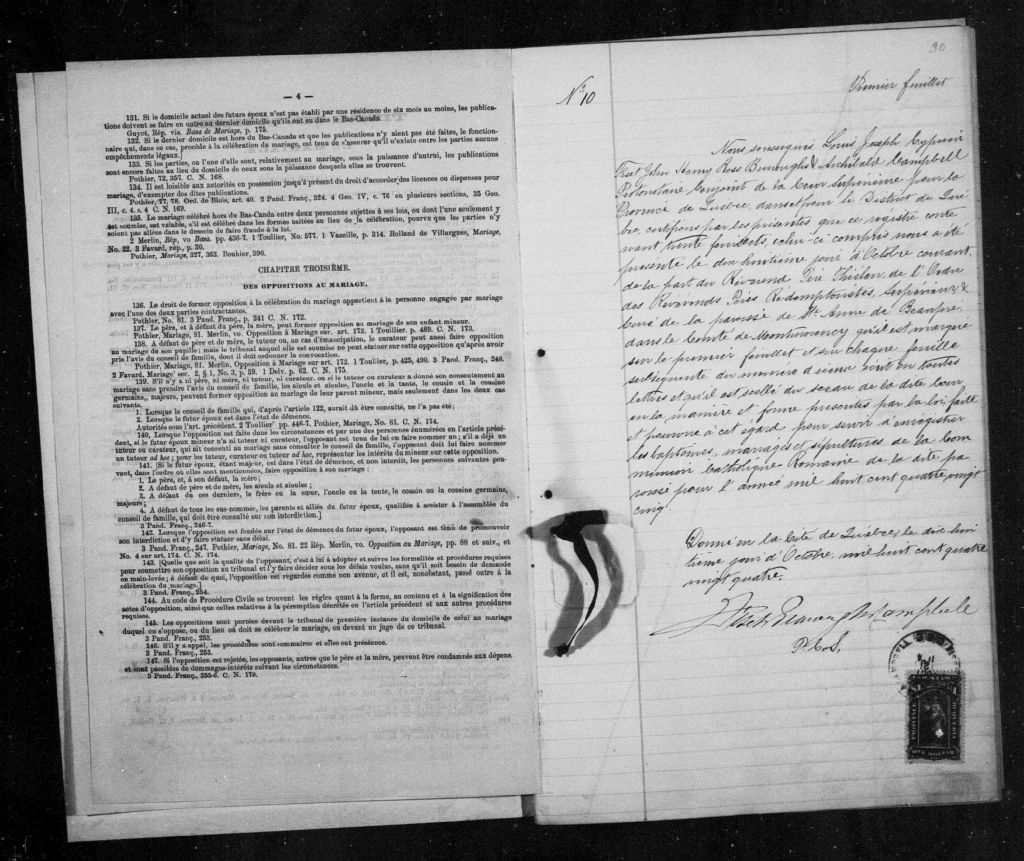 — 4 —
131. Si le domicile actuel des futurs époux n'est pas établi par une résidence de six mois au moins, les publica-
tions doivent se faire en outre au dernier domicile qu'ils ont eu dans le Bas-Canada.
Guyot, Rép. vis. Bans de Mariage, p. 175.
132. Si le dernier domicile est hors du Bas-Canada et que les publications n'y aient pas été faites, le fonction-
naire qui, dans ce cas, procède à la célébration du mariage, est tenu de s'assurer qu'il n'existe entre les parties aucuns
empêchements légaux.
133. Si les parties, ou l'une d'elle sont, relativement au mariage, sous la puissance d'autrui, les publications
sont encore faites au lieu du domicile de ceux sous la puissance desquels elles se trouvent.
Pothier, 72, 357. C. N. 168.
134. Il est loisible aux autorités en possession jusqu'à présent du droit d'accorder des licences ou dispenses pour
mariage, d'exempter des dites publications.
Pothier, 77, 78. Ord. de Blois, art. 40. 2 Pand. Franç., 324. 4 Geo. IV, c. 76 en plusieurs sections, 35 Geo.
III, c. 4, s. 4 C. N. 169.
135. Le mariage célébré hors du Bas-Canda entre deux personnes sujettes à ses lois, ou dont l'une seulement y
est soumise, est valable, s'il est célébré dans les formes usitées au lieu de la célébration, pourvu que les parties n'y
soient pas allées dans le dessein de faire fraude à la loi.
2 Merlin, Rép, vo Bans. pp. 436-7. 1 Toullier, No. 577. 1 Vazeille, p. 314. Rolland de Villargues, Mariage,
No. 22. 3 Favard, rép., p. 30.
Pothier, Mariage, 327, 363. Bouhier, 390.
CHAPITRE TROISIÈME.
DES OPPOSITIONS AU MARIAGE.
136. Le droit de former opposition à la célébration du mariage appartient à la personne engagée par mariage
avec l'une des deux parties contractantes.
Pothier, No. 81. 3 Pand. Franç., p. 241 C. N. 172.
137. Le père, et à défaut du père, la mère, peut former opposition au mariage de son enfant mineur.
Pothier, Mariage, 81. Merlin, vo. Opposition à Mariage sur. art. 173. 1 Touillier. p. 489. C. N. 173.
138. A défaut de père et de mère, le tuteur ou, au cas d'émancipation, le curateur peut aussi faire opposition
au mariage de son pupille; mais le tribunal auquel elle est soumise ne peut statuer sur cette opposition qu'après avoir
pris l'avis du conseil de famille, dont il doit ordonner la convocation.
Pothier, Mariage, 81. Merlin, Opposition à Mariage sur art. 172. 1 Toulier, p. 425, 490. 3 Pand. Franç., 248.
2 Favard, Mariage' sec. 2, § 1, No. 3, p. 59. 1 Delv. p. 62. C. N. 175.
139. S'il n'y a ni père, ni mère, ni tuteur, ni curateur, ou si le tuteur ou curateur a donné son consentement au
mariage sans prendre l'avis du conseil de famille, les aïeuls et aïeules, l'oncle et la tante, le cousin et la cousine
germains, majeurs, peuvent former opposition au mariage de leur parent mineur, mais seulement dans les deux cas
suivants.
1. Lorsque le conseil de famille qui, d'après l'article 122, aurait dû être consulté, ne l'a pas été;
2. Lorsque le futur époux est dans l'état de démence.
Autorités sous l'art. précédent. 2 Toullier' pp. 446-7. Pothier, Mariage, No. 81. C. N. 174.
140. Lorsque l'opposition est faite dans les circonstances et par une des personnes énumérées en l'article précé-
dent, si le futur époux mineur n'a ni tuteur ni curateur, l'opposant est tenu de lui en faire nommer un; s'il a déjà un
tuteur ou curateur, qui ait consenti au mariage sans consulter le conseil de famille, l'opposant doit lui faire nommer
un tuteur ad hoc; pour les tuteur, curateur ou tuteur ad hoc, représenter les intérêts du mineur sur cette opposition.
141. [Si le futur époux, étant majeur, est dans l'état de démence, et non interdit, les personnes suivantes peu-
vent, dans l'ordre où elles sont mentionnées, faire opposition à son mariage :
1. Le père, et, à son défaut, la mère;
2. A défaut de père et de mère, les aïeuls et aïeules;
3. A défaut de ces derniers, le frère ou la sœur, l'oncle ou la tente, le cousin ou la cousine germains,
majeurs;
4. A défaut de tous les sus-nommés, les parents et alliés du futur époux, qualifiés à assister à l'assemblée du
conseil de famille, qui doit être consulté sur son interdiction.]
3 Pand. Franç., 246-7.
142. Lorsque l'opposition est fondée sur l'état de démence du futur époux, l'opposant est tenu de promouvoir
son interdiction et d'y faire statuer sans délai.
3 Pand. Franç., 247. Pothier, Mariage, No. 81. 22 Rép. Merlin, vo. Opposition au Mariage, pp. 88 et suiv., et
No. 4 sur art. 174. C. N. 174.
143. [Quelle que soit la qualité de l'opposant, c'est à lui à adopter et suivre les formalités et procédures requises
pour soumettre son opposition au tribunal et l'y faire décider sous les délais voulus, sans qu'il soit besoin de demande
en main-levée; à défaut de quoi, l'opposition est regardée comme non avenue, et il est, nonobstant, passé outre à la
célébration du mariage.]
3 Pand. Franç., 254.
144. Au code de Procédure Civile se trouvent les règles quant à la forme, au contenu et à la signification des
actes d'opposition, ainsi que celles relatives à la péremption décrétée en l'article précédent et aux autres procédures
requises.
145. Les oppositions sont portées devant le tribunal de première instance du domicile de celui au mariage
duquel on s'oppose, ou du lieu où doit se célébrer le mariage, ou devant un juge de ce tribunal.
3 Pand. Franç., 253.
146. S'il y a appel, les procédures sont sommaires et elles ont préséance.
3 Pand. Franç., 253.
147. Si l'opposition est rejetée, les opposants, autres que le père et la mère, peuvent être condamnés aux dépens
et sont passibles de dommages-intérêts suivant les circonstances.
3 Pand. Franç., 255-6. C. N. 179.
30
No 10
Premier feuillet
Nous soussignés Louis Joseph Cyprien
Fiset John Henry Ross Burroughs & Archibald Campbell
Protonotaire Conjoint de la Cour Supérieure pour la
Province de Québec, dans et pour le District de Qué
bec, certifions par les présentes que ce registre conte
nant trente feuillets, celui-ci compris nous a été
présenté le dix huitième jour d'Octobre courant,
de la part du Révérend Père Thielen, de l'Ordre
des Révérends Pères Rédemptoristes, Supérieur &
Curé de la paroisse de Ste Anne de Beaupré
dans le Comté de Montmorency qu'il est marqué
sur le premier feuillet et sur chaque feuille
subséquente du numéro d'icelui écrit en toutes
lettres et qu'il est scellé du sceau de la dite Cour
en la manière et forme prescrites par la loi faite
et pourvue à cet égard pour servir à enregistrer
les baptêmes, mariages et sépultures de la Com
munion Catholique Romaine de la dite pa
roisse pour l'année mil huit cent quatre vingt
cinq.
Donné en la Cité de Québec, le dix hui
tième jour d'Octobre, mil huit cent quatre
vingt quatre.
Fiset Burroughs & Campbell
P.C.S.
PROVINCE
OF QUEBEC
ONE DOLLAR